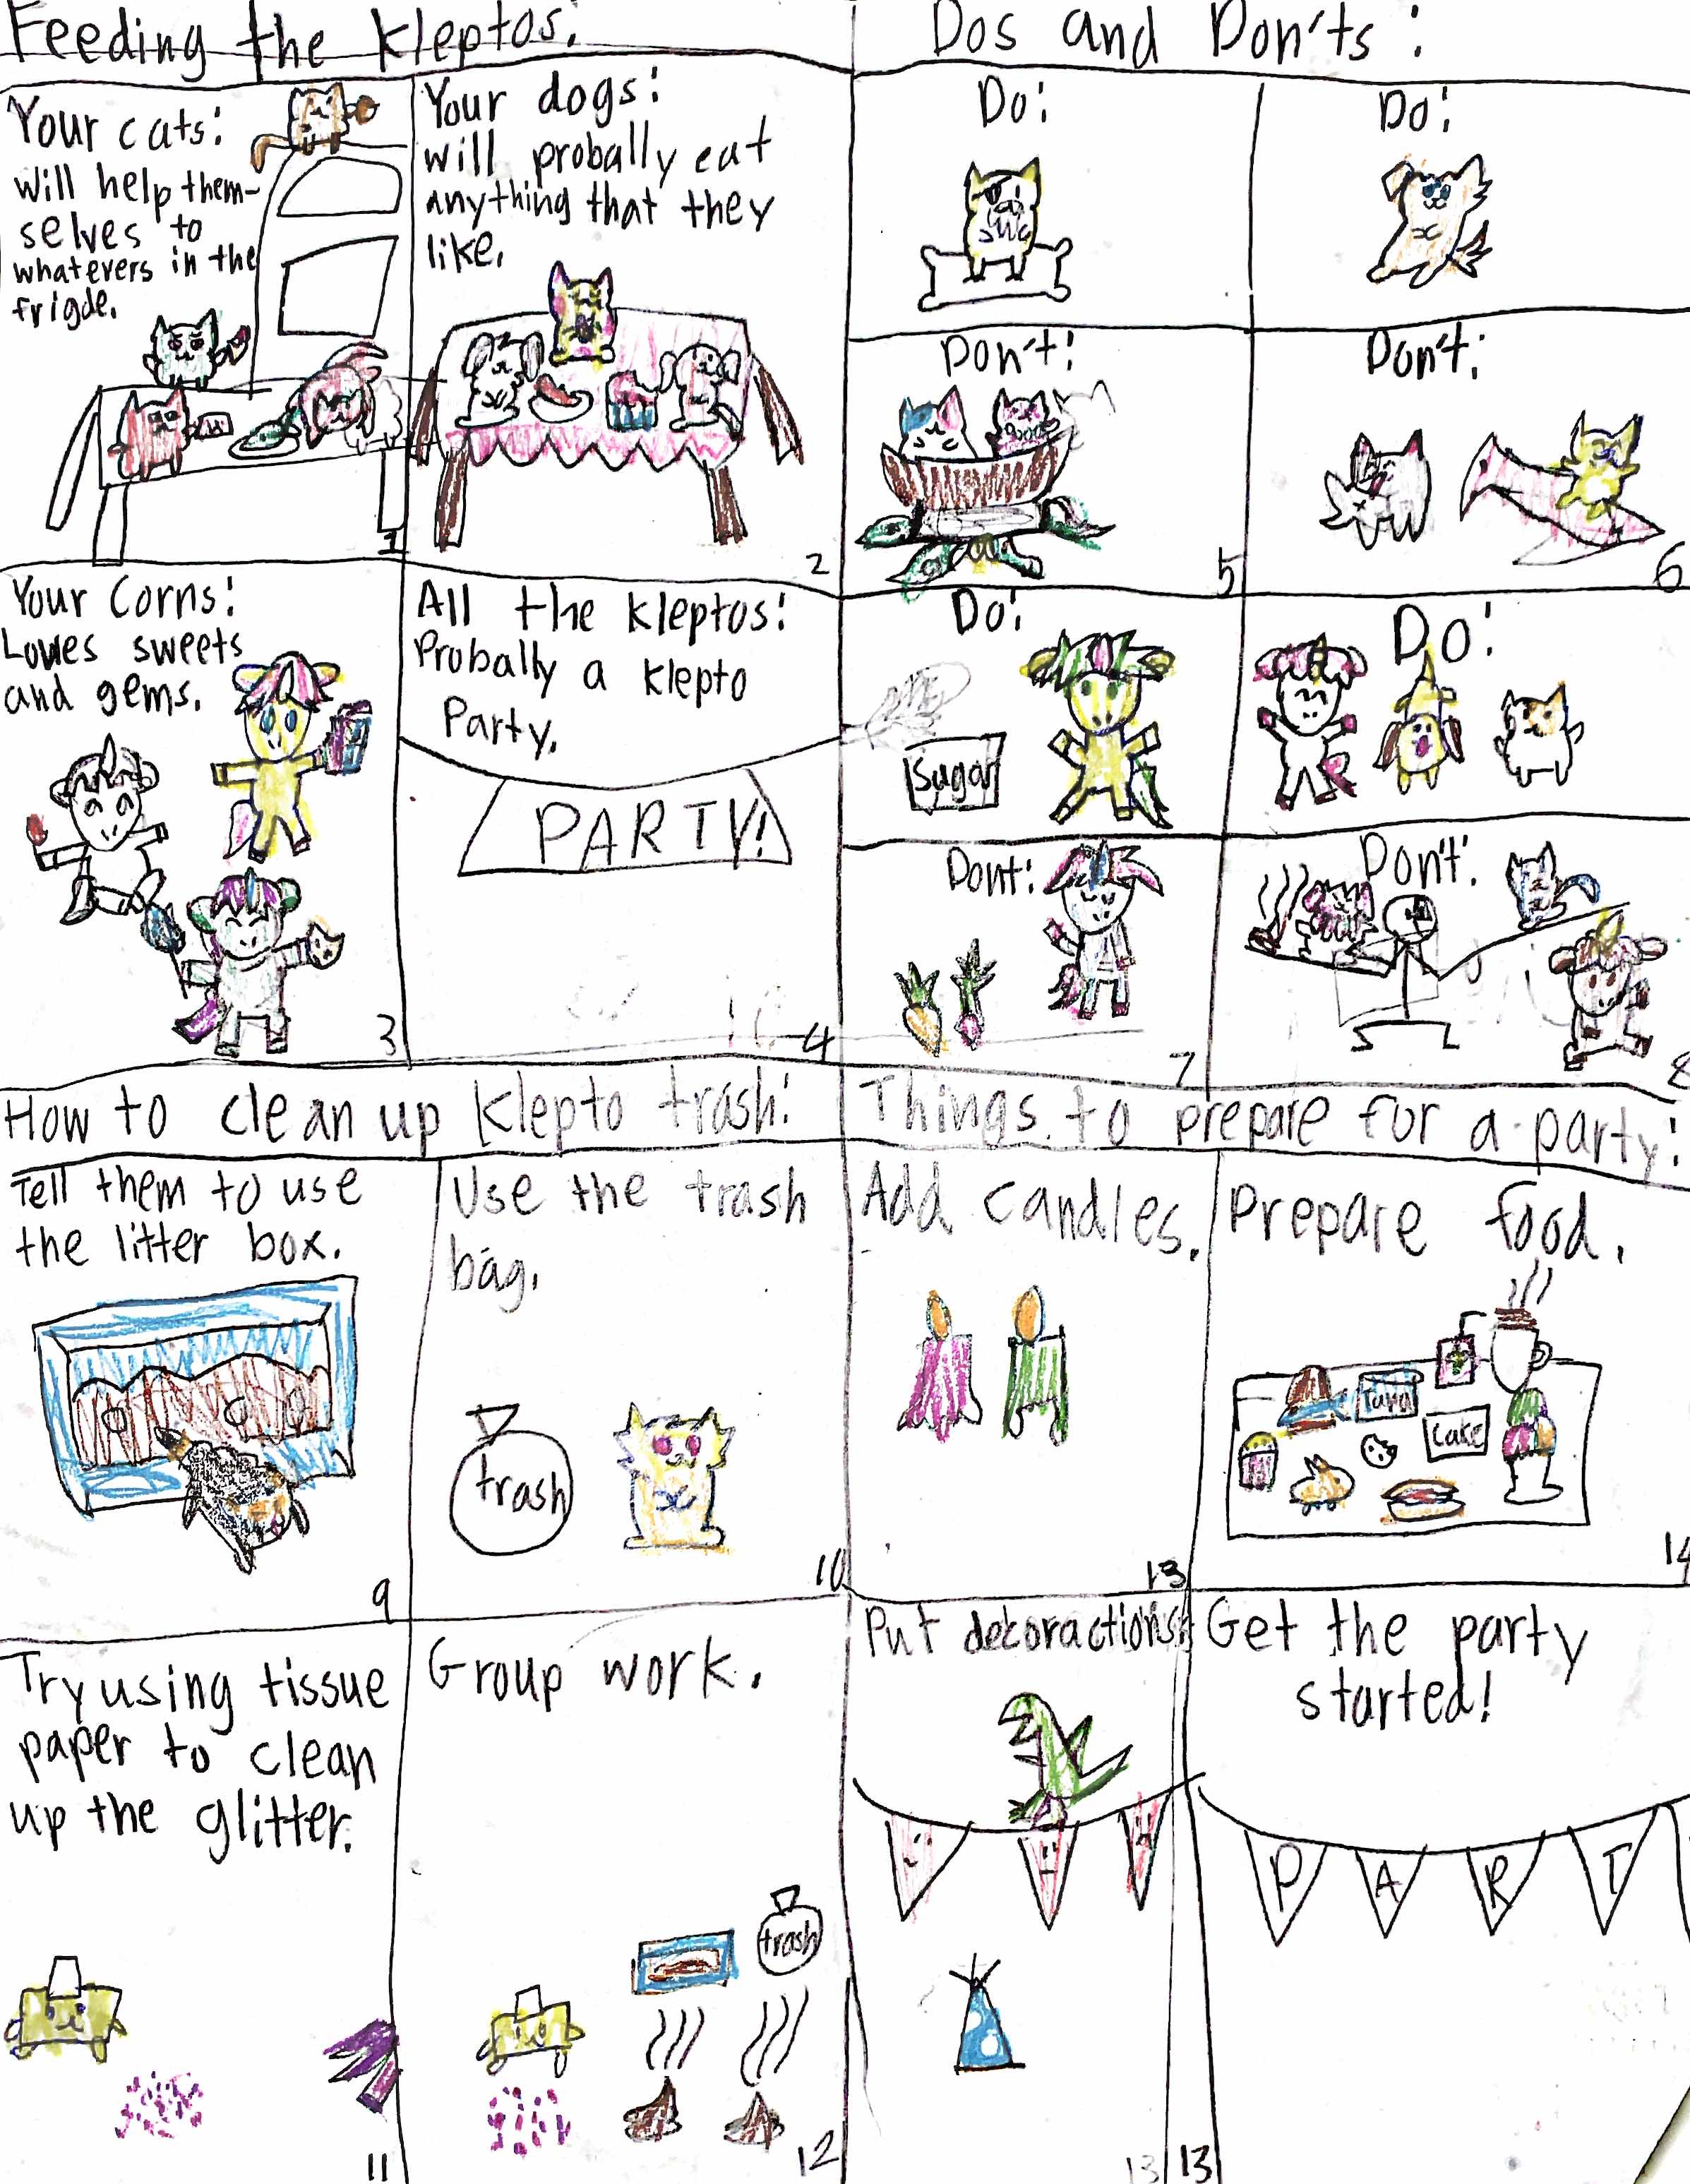 Feeding the Kleptos:
Your cats:
will help them-
selves to
whatevers in the
frigde.
1
Your dogs:
will probally eat
anything that they
like.
2
Your Corns:
Loves sweets
and gems.
3
All the Kleptos:
Probally a Klepto
Party.
PARTY!
4
Dos and Don'ts:
Do:
Don't:
5
Do:
Don't:
6
Do:
Sugar
Dont:
7
Do:
Don't:
8
How to clean up Klepto trash:
Tell them to use
the litter box.
9
Use the trash
bag.
trash
10
Try using tissue
paper to clean
up the glitter.
11
Group work.
trash
12
Things to prepare for a party:
Add candles.
13
Prepare food.
Cake
14
Put decoractions
13
13
Get the party
started!
P A R T